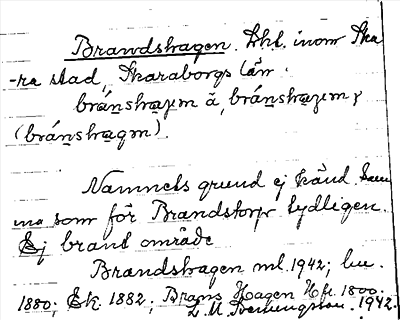 Brandshagen. Lkl. inom Ska
-ra stad, Skaraborgs län.
bránshagəm ā, bránshagəm
(bránshagm).
Namnets grund ej känd. Sam
ma som för Brandstorp tydligen.
Ej brant område
Brandshagen ml. 1942; hu.
1880; Ek. 1882; Brams Hagen Hfl. 1800.
1942.